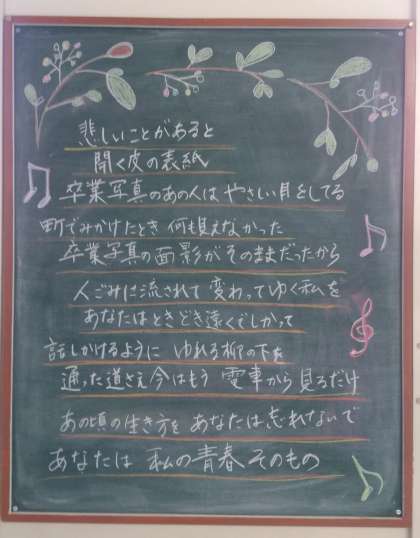 悲しいことがあると
開く皮の表紙
卒業写真のあの人は やさしい目をしてる
町でみかけたとき 何も見えなかった
卒業写真の面影がそのままだったから
人ごみに流されて 変わってゆく私を
あなたはときどき遠くでしかって
話しかけるように ゆれる柳の下を
通った道さえ今はもう 電車から見るだけ
あの頃の生き方を あなたは忘れないで
あなたは 私の青春 そのもの